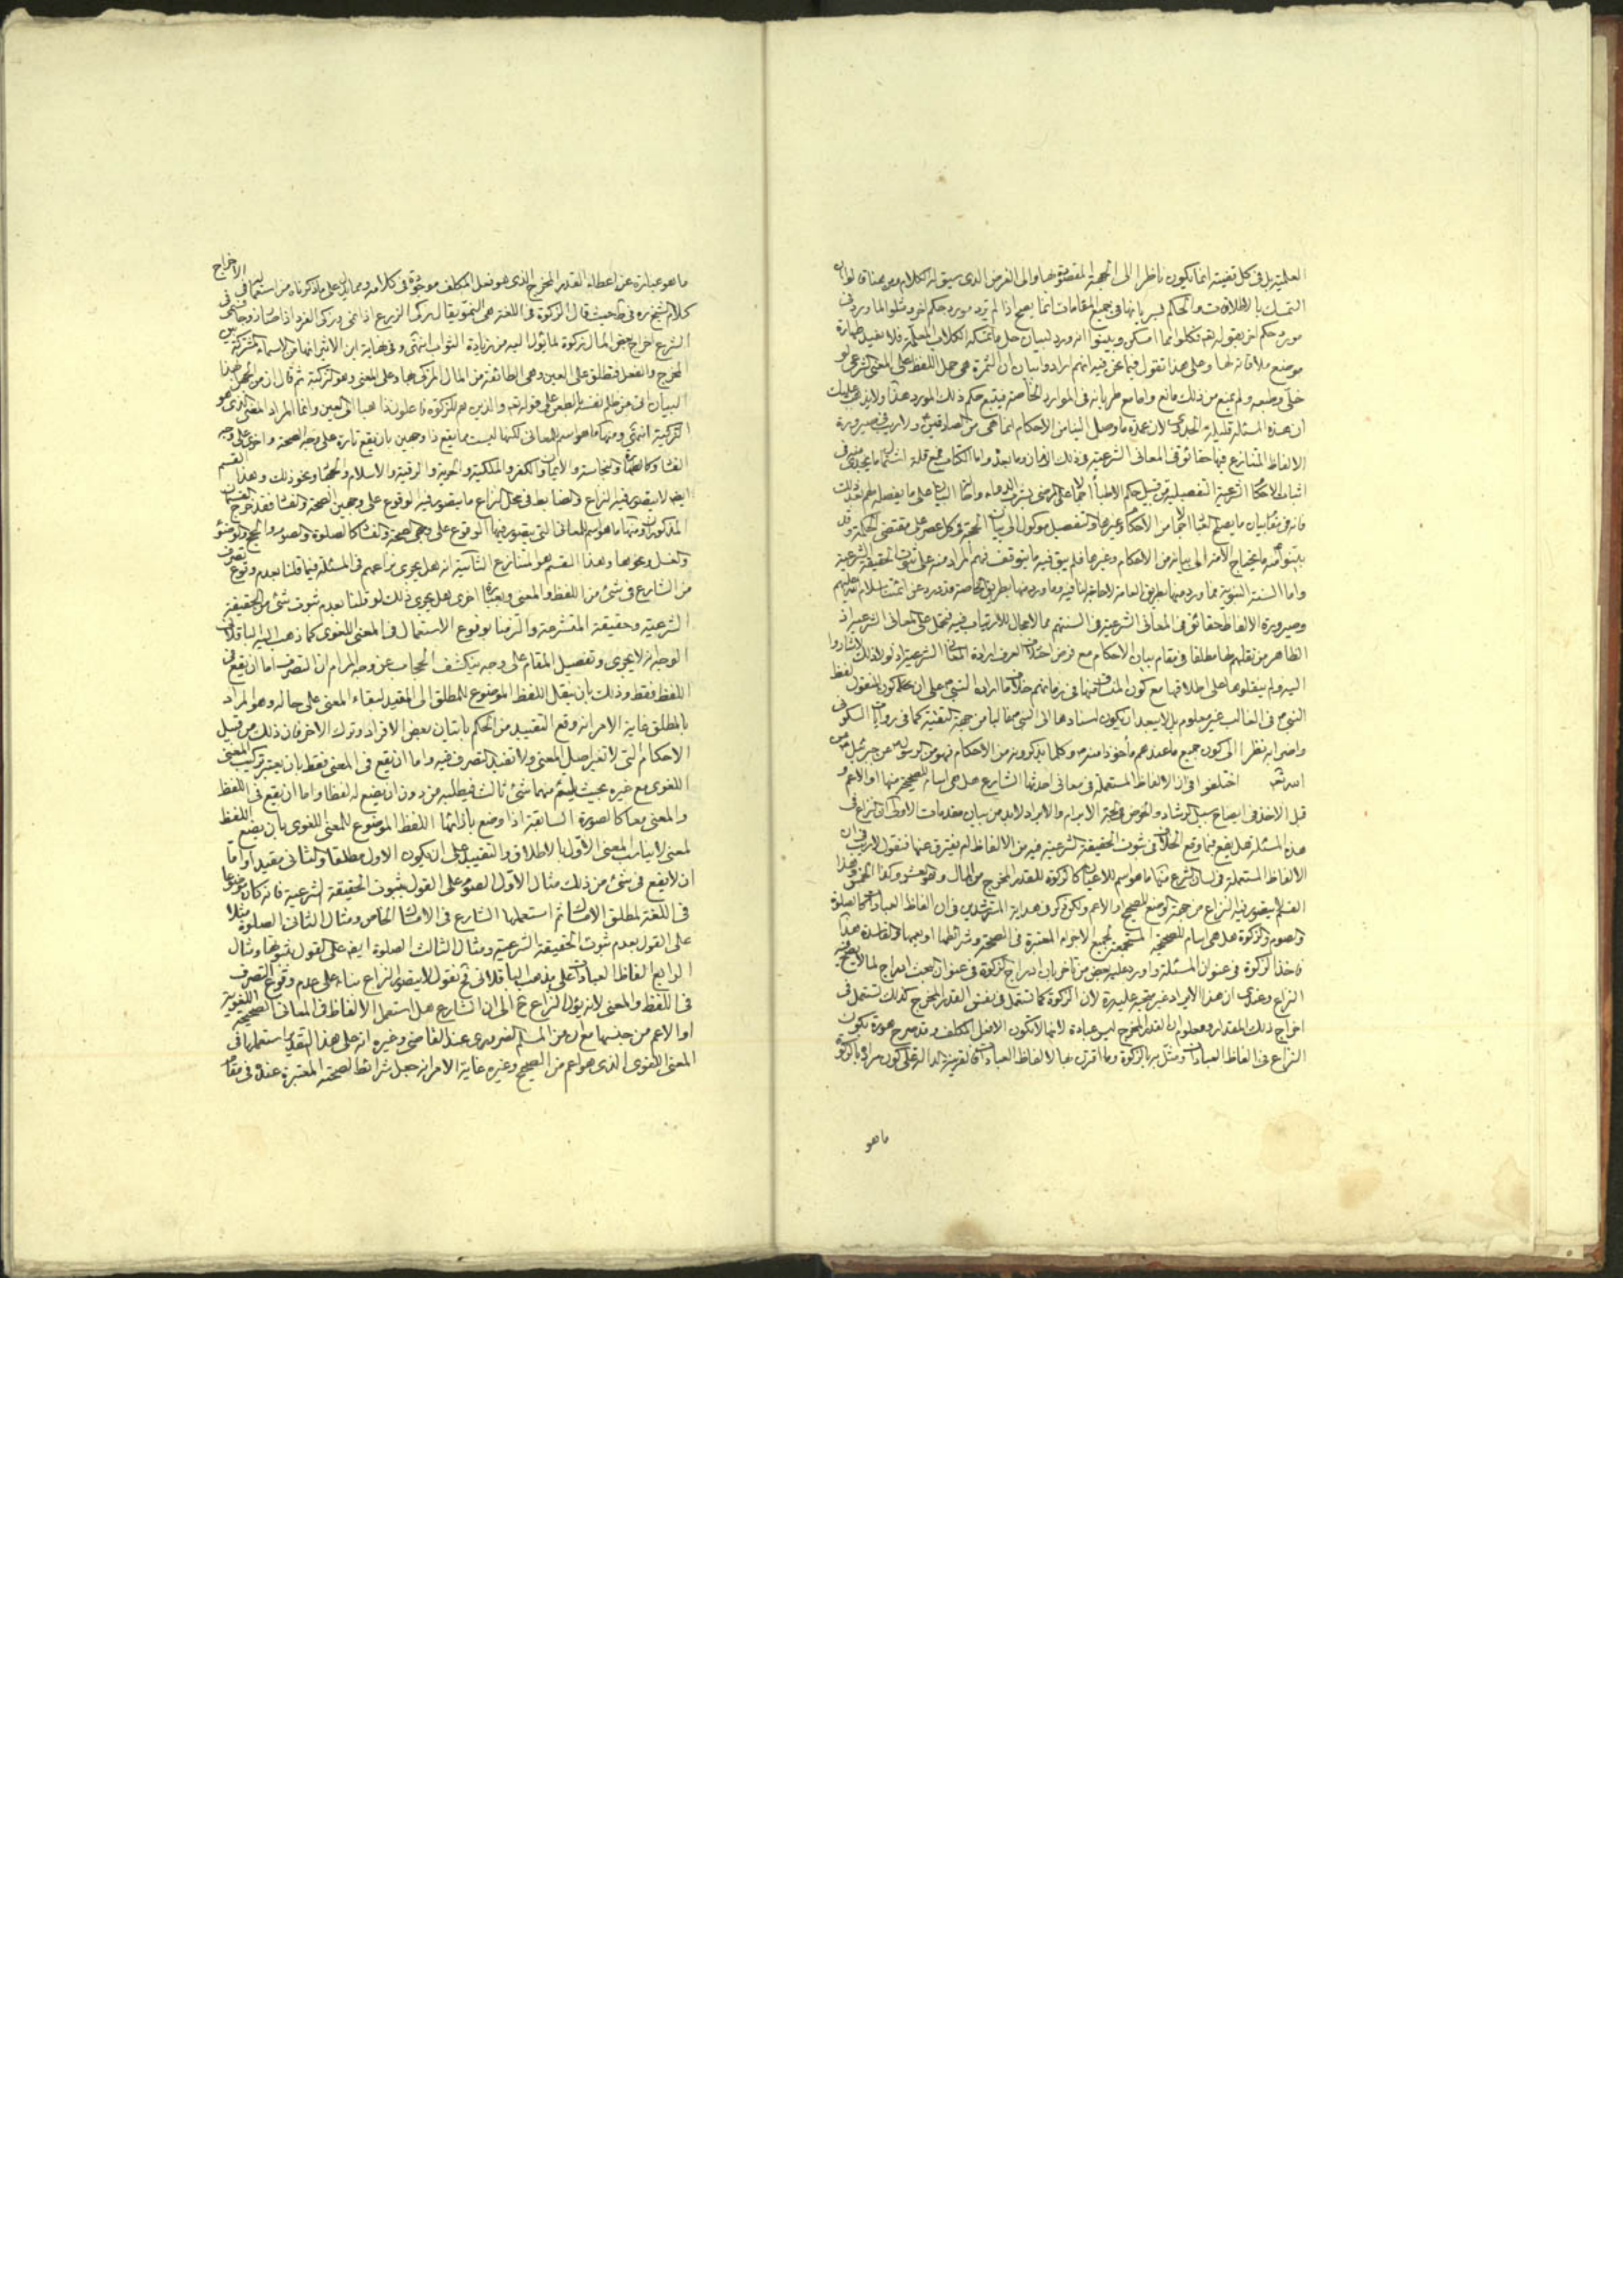 العلمية بل في كل قضية انما يكون ناظرا الى الجهة المقصودة بها والى الغرض الذي سيق له الكلام ومن هنا قالوا ان
التمسك بالاطلاقات والحكم بسريانها في جميع المقامات انما يصح اذا لم يرد مورد حكم اخر ومثلوا لما ورد في
مورد حكم اخر بقوله تعالى فكلوا مما امسكن وبينوا انه ورد لبيان حل ما تمسكه الكلاب المعلمة فلا يفيد طهارة
موضع ملاقاته لها وعلى هذا نقول فيما نحن فيه انهم ارادوا بيان ان الثمرة هي حمل اللفظ على المعنى الشرعي لو
خلى وطبعه ولم يمنع من ذلك مانع واما مع طريانه في الموارد الخاصة فيتبع حكم ذلك المورد هذا ولا يذهب عليك
ان هذه المسئلة قليلة الجدوى لان عمدة ما وصل الينا من الاحكام انما هي من الصادقين ولا ريب في صيرورة
الالفاظ المتنازع فيها حقائق في المعاني الشرعية في ذلك الزمان وما بعده واما الكتاب فمع قلة اشتماله ما يجدي منه في
اثبات الاحكام الشرعية التفصيلية من قبيل حكم الاطباء اجمالا على المريض بشرب الدواء واحالة البيان على ما يفصله لهم بعد ذلك
فانه في مقام بيان ما يصلح العباد اجمالا من الاحكام وغيرها والتفصيل موكول الى بيان الحجة في كل عصر على مقتضى الحكمة وقد
بينوا منه ما يحتاج الامة الى بيانه من الاحكام وغيرها فلم يبق فيه ما يتوقف فهم المراد منه على ثبوت الحقيقة الشرعية
واما السنة النبوية فما ورد منها بطريق العامة لا حاجة لنا فيه وما ورد منها بطريق الخاصة فقد ورد عن ائمتنا سلام الله عليهم
وصيرورة الالفاظ حقائق في المعاني الشرعية في السنتهم مما لا مجال للارتياب فيه فتحمل على المعاني الشرعية اذ
الظاهر من نقلهم لها مطلقا في مقام بيان الاحكام مع فرض اختلاف العرف ارادة المعاني الشرعية اذ لولا ذلك لاشاروا
اليه ولم ينقلوها على اطلاقها مع كون المنساق منها في زمانهم خلاف ما اراده النبي ص على ان بحكم كون المنقول لفظ
النبي ص في الغالب غير معلوم بل لا يبعد ان يكون اسنادها الى النبي ص غالبا من جهة التقية كما في روايات السكوني
واضرابه نظرا الى كون جميع ما عندهم مأخوذا منه ص وكلما يذكرونه من الاحكام فهو من الرسول ص عن جبرئيل عن
الله تعالى اختلفوا في ان الالفاظ المستعملة في معاني احدثها الشارع هل هي اسام للصحيح منها او الاعم و
قبل الاخذ في ايضاح سبيل الرشاد والخوض في لجة الابرام والايراد لابد من بيان مقدمات الاولى ان النزاع في
هذه المسئلة هل يقع فيما وقع الخلاف في ثبوت الحقيقة الشرعية فيه من الالفاظ ام يفترق عنها فنقول لا ريب في ان
الالفاظ المستعملة في لسان الشرع منها ما هو اسم للاعيان كالزكوة للقدر المخرج من المال وهو العشر وكذا الخمس وهذا
القسم لا يتصور فيه النزاع من جهة الوضع للصحيح او الاعم ولكن ذكر في هداية المسترشدين في ان الفاظ العبادات كالصلوة
والصوم والزكوة هل هي اسام للصحيحة المستجمعة لجميع الاجزاء المعتبرة في الصحة وشرائطها او يعمها والفاسدة هذا
فاخذ الزكوة في عنوان المسئلة واورد عليه بعض من تأخر بان ادراج الزكوة في عنوان البحث ادراج لما لا يصح فيه
النزاع وعندي ان هذا الايراد غير متجه عليه لان الزكوة كما تستعمل في نفس القدر المخرج كذلك تستعمل في
اخراج ذلك المقدار ومعلوم ان القدر المخرج ليس عبادة لانها لا تكون الا فعل المكلف وقد صرح هو ره بكون
النزاع في الفاظ العبادات ومثل بها بالزكوة وما اقترن بها لالفاظ العبادات قرينة دالة على كون مراده بالزكوة
ما هو
ما هو عبارة عن اعطاء القدر المخرج الذي هو فعل المكلف موجود في كلامه ومما يدل على ما ذكرناه من استعمالها في الاخراج
كلام الشيخ ره في ط حيث قال الزكوة في اللغة هي النمو يقال زكى الزرع اذا نمى وزكى الفرد اذا صار زوجا وهي في
الشرع اخراج بعض المال زكوة لما يؤل اليه من زيادة الثواب انتهى وفي نهاية ابن الاثير انها من الاسماء المشتركة بين
المخرج والفعل فتطلق على العين وهي الطائفة من المال المزكى بها وعلى المعنى وهو التزكية ثم قال ان من الجهل بهذا
البيان اتى من ظلم نفسه بالطعن على قوله تعالى والذين هم للزكوة فاعلون ذاهبا الى العين وانما المراد المعنى الذي هو
التزكية انتهى ومنها ما هو اسم للمعاني لكنها ليست مما يقع ذا وجهين بان يقع تارة على وجه الصحة واخرى على وجه
الفساد كالطهارة والنجاسة والايمان والكفر والملكية والحرية والرقية والاسلام ونحو ذلك وهذا القسم
ايضا لا يتصور فيه النزاع والضابط في محل النزاع ما يتصور فيه الوقوع على وجهين الصحة والفساد فقد خرج القسمان
المذكوران ومنها ما هو اسم للمعاني التي يتصور فيها الوقوع على وجهي الصحة والفساد كالصلوة والصوم والحج والوضوء
والغسل ونحوها وهذا القسم هو المتنازع الثانية انه هل يجري نزاعهم في المسئلة فيما قلنا بعدم وقوع تصرف
من الشارع في شئ من اللفظ والمعنى وبعبارة اخرى هل يجري ذلك لو قلنا بعدم ثبوت شئ من الحقيقة
الشرعية وحقيقة المتشرعة والزمنا بوقوع الاستعمال في المعنى اللغوي كما ذهب اليه الباقلاني
الوجه انه لا يجري وتفصيل المقام على وجه ينكشف الحجاب عن وجه المرام ان التصرف اما ان يقع في
اللفظ فقط وذلك بان ينقل اللفظ الموضوع للمطلق الى المقيد لبقاء المعنى على حاله وهو المراد
بالمطلق غاية الامر انه وقع التقييد من الحاكم باتيان بعض الافراد وترك الاخر فان ذلك من قبيل
الاحكام التي لا تغير اصل المعنى ولا تفيد التصرف فيه واما ان يقع في المعنى فقط بان يعتبر تركيب المعنى
اللغوي مع غيره بحيث يلتئم منهما شئ ثالث فيطلبه من دون ان يضع له لفظا واما ان يقع في اللفظ
والمعنى معا كالصورة السابقة اذا وضع بازائها اللفظ الموضوع للمعنى اللغوي بان يضع اللفظ
لمعنى لا يناسب المعنى الاول بالاطلاق والتقييد على ان يكون الاول مطلقا والثاني مقيدا واما
ان لا يقع في شئ من ذلك مثال الاول الصوم على القول بثبوت الحقيقة الشرعية فانه كان موضوعا
في اللغة لمطلق الامساك ثم استعملها الشارع في الامساك الخاص ومثال الثاني الصلوة مثلا
على القول بعدم ثبوت الحقيقة الشرعية ومثال الثالث الصلوة ايضا على القول بثبوتها ومثال
الرابع الفاظ العبادات على مذهب الباقلاني ثم نقول لا يتصور النزاع بناء على عدم وقوع التصرف
في اللفظ والمعنى لانه يؤل النزاع ح الى ان الشارع هل استعمل الالفاظ في المعاني اللغوية الصحيحة
او الاعم من جنسها مع ان من المسلم الضروري عند القاضي وغيره انه على هذا التقدير استعملها في
المعنى اللغوي الذي هو اعم من الصحيح وغيره غاية الامر انه جعل شرائط لصحته المعتبرة عنده في مقام